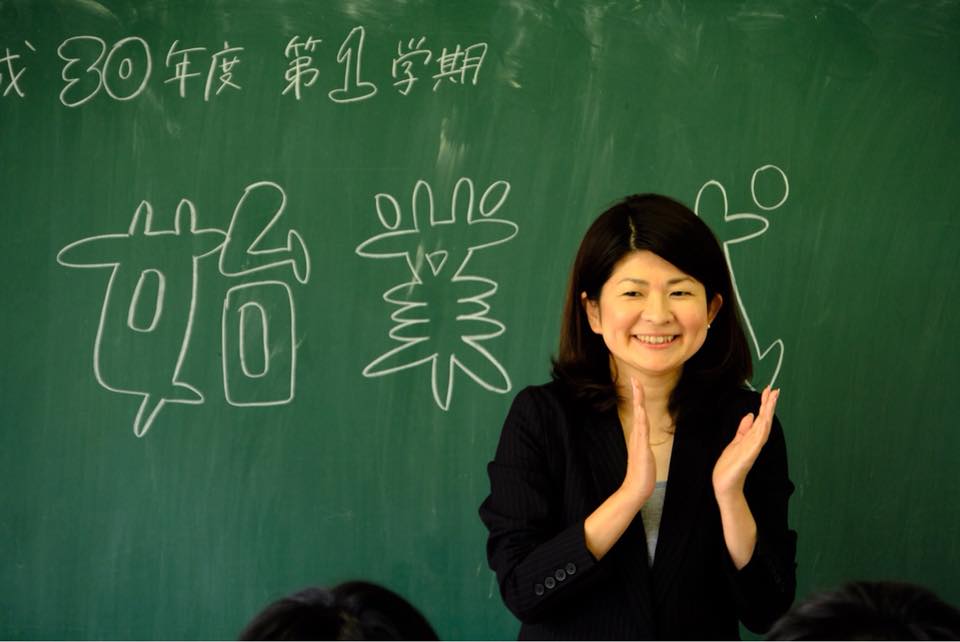 成30年度 第1学期
始業式